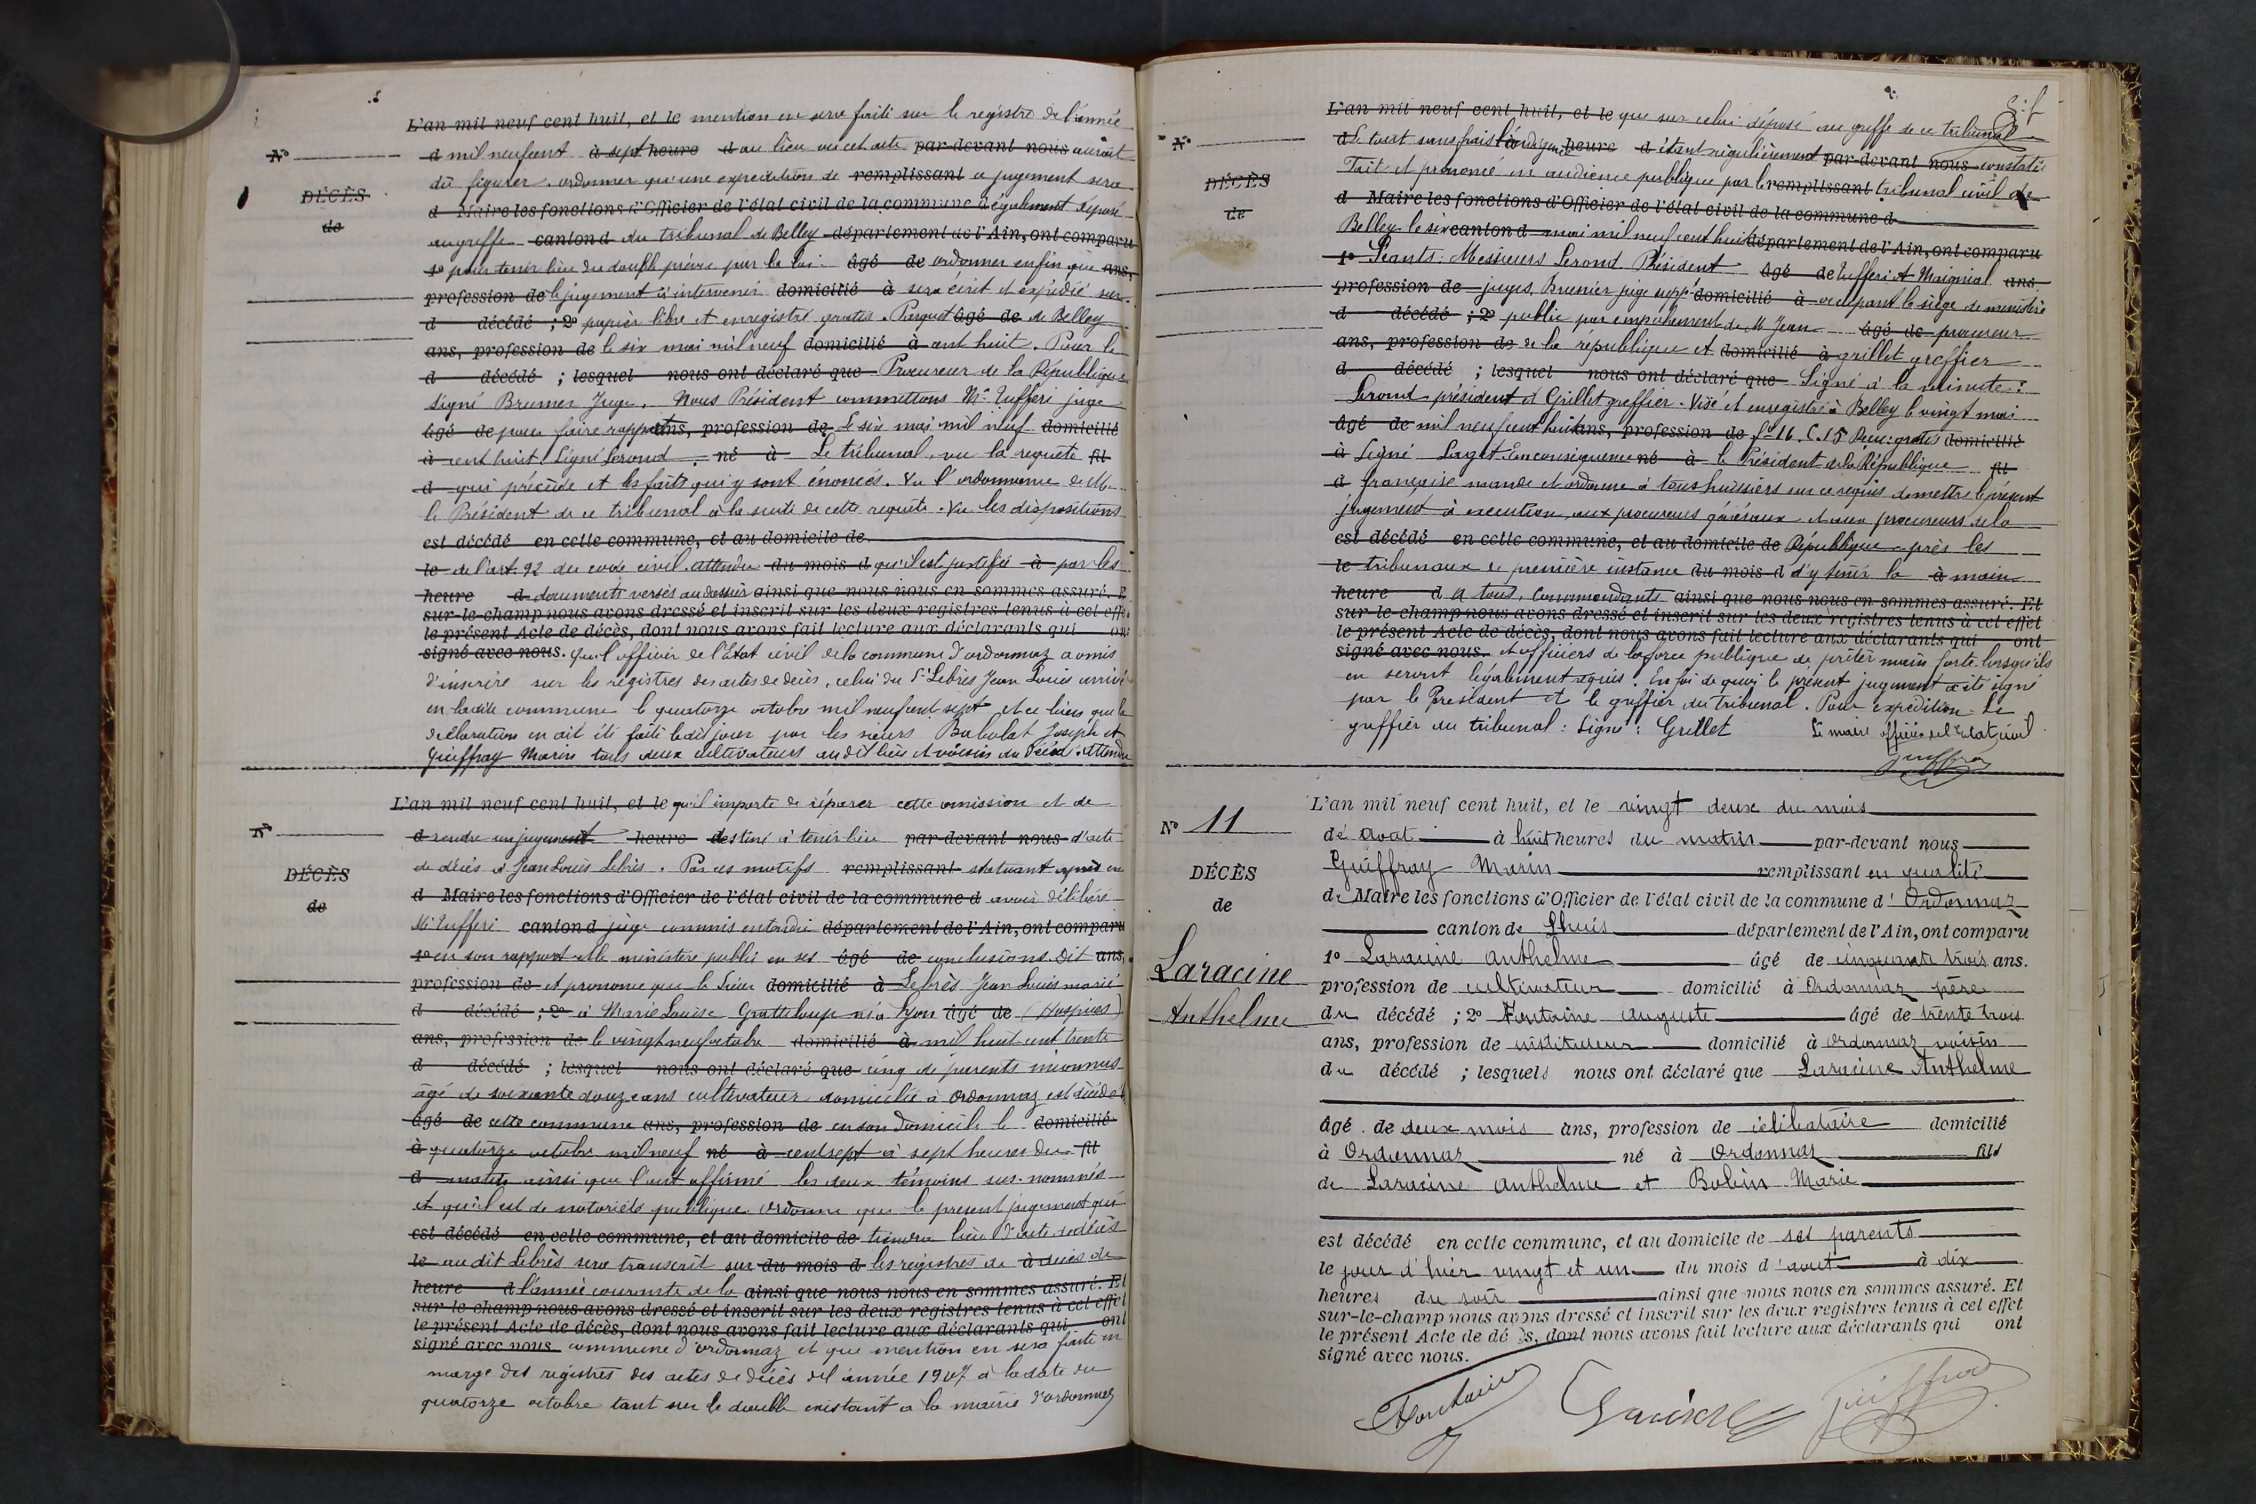 L'an mil neuf cent huit, et le mention en sera faite sur le registre de l'année
d mil neuf cent à sept heure d au lieu où cet acte par-devant nous aurait
N°
dû figurer. ordonner qu'une expedition de remplissant ce jugement sera
DÉCÈS
d Maire les fonctions d'Officier de l'état civil de la commune d également déposé
de
au greffe canton d du tribunal de Belley département de l'Ain, ont comparu
1° pour tenir lieu du double prévu par la loi. âgé de ordonner enfin que ans,
profession de le jugement à intervenir domicilié à sera écrit et expédié sur
d décédé ; 2° papier libre et enregistré gratis. Parquet âgé de de Belley
ans, profession de le six mai mil neuf domicilié à cent huit. Pour le
d décédé ; lesquel nous ont déclaré que Procureur de la République
signé Brumer Juge. Nous Président commettons Mr Tufferi juge
âgé de pour faire rapport ans, profession de Le six mai mil neuf domicilié
à cent huit. Signé Serond. né à Le tribunal, vu la requête fil
d qui précède et les faits qui y sont énoncés. Vu l'ordonnance de M.
le Président de ce tribunal à la suite de cette requête. Vu les dispositions
est décédé en cette commune, et au domicile de
le de l'art. 92 du code civil. attendu du mois d qu'il est justifié à par les
heure d documents versés au dossier ainsi que nous nous en sommes assuré. E
sur-le-champ nous avons dressé et inscrit sur les deux registres tenus à cet effe
le présent Acte de décès, dont nous avons fait lecture aux déclarants qui on
signé avec nous. que l'officier de l'Etat civil de la commune d'ordonnaz a omis
d'inscrire sur les registres des actes de décès, celui du Sr Lebrès Jean Louis arrivé
en ladite commune le quatorze octobre mil neuf cent sept et ce bien que la
déclaration en ait été faite le dit jour par les sieurs Babolat Joseph et
Guiffray Marin tous deux cultivateurs au dit lieu et voisins du décédé. Attendu
L'an mil neuf cent huit, et le qu'il importe de réparer cette omission et de
N°
d rendre un jugement heure destiné à tenir lieu par-devant nous d'acte
de décès à Jean Louis Lebrès. Par ces motifs remplissant statuant après en
DÉCÈS
d Maire les fonctions d'Officier de l'état civil de la commune d avoir délibéré
de
Mr Tufferi canton d juge commis entendu département de l'Ain, ont comparu
1° en son rapport et le ministère public en ses âgé de conclusions. Dit ans,
profession de et prononce que le sieur domicilié à Lebrès Jean Louis marié
d décédé ; 2° à Marie Louise Gratteloup né à Lyon âgé de (Hospices)
ans, profession de le vingt neuf octobre domicilié à mil huit cent trente
d décédé ; lesquel nous ont déclaré que cinq de parents inconnus
âgé de soixante douze ans cultivateur domicilié à Ordonnaz est décédé
âgé de cette commune ans, profession de en son domicile le domicilié
à quatorze octobre mil neuf né à cent sept à sept heures du fil
d matin ainsi que l'ont affirmé les deux témoins sus-nommés
et qu'il est de notoriété publique. ordonne que le present jugement qui
est décédé en cette commune, et au domicile de tiendra lieu d'acte de décès
le au dit Lebrès sera transcrit sur du mois d les registres de à décès de
heure d l'année courante de la ainsi que nous nous en sommes assuré. Et
sur-le-champ nous avons dressé et inscrit sur les deux registres tenus à cet effet
le présent Acte de décès, dont nous avons fait lecture aux déclarants qui ont
signé avec nous commune d'ordonnaz et que mention en sera faite en
marge des registres des actes de décès de l'année 1907 à la date du
quatorze octobre tant sur le double existant à la mairie d'ordonnaz
L'an mil neuf cent huit, et le que sur celui déposé au greffe de ce tribunal
N°
d Le tout sans frais l'indigence heure d étant régulièrement par-devant nous constatée
Fait et prononcé en audience publique par le remplissant tribunal civil de
DÉCÈS
d Maire les fonctions d'Officier de l'état civil de la commune d
de
Belley le six canton d mai mil neuf cent huit département de l'Ain, ont comparu
1° Séants : Messieurs Serond Président âgé de Tufferi et Maignial ans
profession de juges, Brumer juge supp' domicilié à occupant le siège de ministère
d décédé ; 2° public par empêchement de M Jean âgé de procureur
ans, profession de de la république et domicilié à grillet greffier
d décédé ; lesquel nous ont déclaré que Signé à la minute :
Serond président et Grillet greffier. Visé et enregistré à Belley le vingt mai
âgé de mil neuf cent huit ans, profession de f° 16. C. 15 Reçu : gratis domicilié
à Signé Laget. En conséquence né à le Président de la République fil
d française mande et ordonne à tous huissiers sur ce requis de mettre le présent
jugement à execution, aux procureurs généraux et aux procureurs de la
est décédé en cette commune, et au domicile de République près les
le tribunaux de première instance du mois d d'y tenir la à main
heure d a tous, Commandants ainsi que nous nous en sommes assuré. Et
sur-le-champ nous avons dressé et inscrit sur les deux registres tenus à cet effet
le présent Acte de décès, dont nous avons fait lecture aux déclarants qui ont
signé avec nous. et officiers de la force publique de prêter main forte lorsqu'ils
en seront légalement requis. En foi de quoi le présent jugement a été signé
par le Président et le greffier du Tribunal. Pour expédition Le
greffier du tribunal : Signé : Grillet Le maire officier de l'Etat civil
Guiffray
L'an mil neuf cent huit, et le vingt deux du mois
N° 11
de aoat à huit heures du matin par-devant nous
Guiffray Marin remplissant en qualité
DÉCÈS
de Maire les fonctions d'Officier de l'état civil de la commune d' Ordonnaz
de
canton de Lhuis département de l'Ain, ont comparu
Laracine
1° Laracine Anthelme âgé de cinquante trois ans.
profession de cultivateur domicilié à Ordonnaz père
Anthelme
du décédé ; 2° Fontaine Auguste âgé de trente trois
ans, profession de instituteur domicilié à Ordonnaz voisin
du décédé ; lesquels nous ont déclaré que Laracine Anthelme
âgé de deux mois ans, profession de célibataire domicilié
à Ordonnaz né à Ordonnaz fils
de Laracine Anthelme et Bobin Marie
est décédé en cette commune, et au domicile de ses parents
le jour d'hier vingt et un du mois d'aout à dix
heures du soir ainsi que nous nous en sommes assuré. Et
sur-le-champ nous avons dressé et inscrit sur les deux registres tenus à cet effet
le présent Acte de dé ès, dont nous avons fait lecture aux déclarants qui ont
signé avec nous.
Fontaine Laracine Guiffray